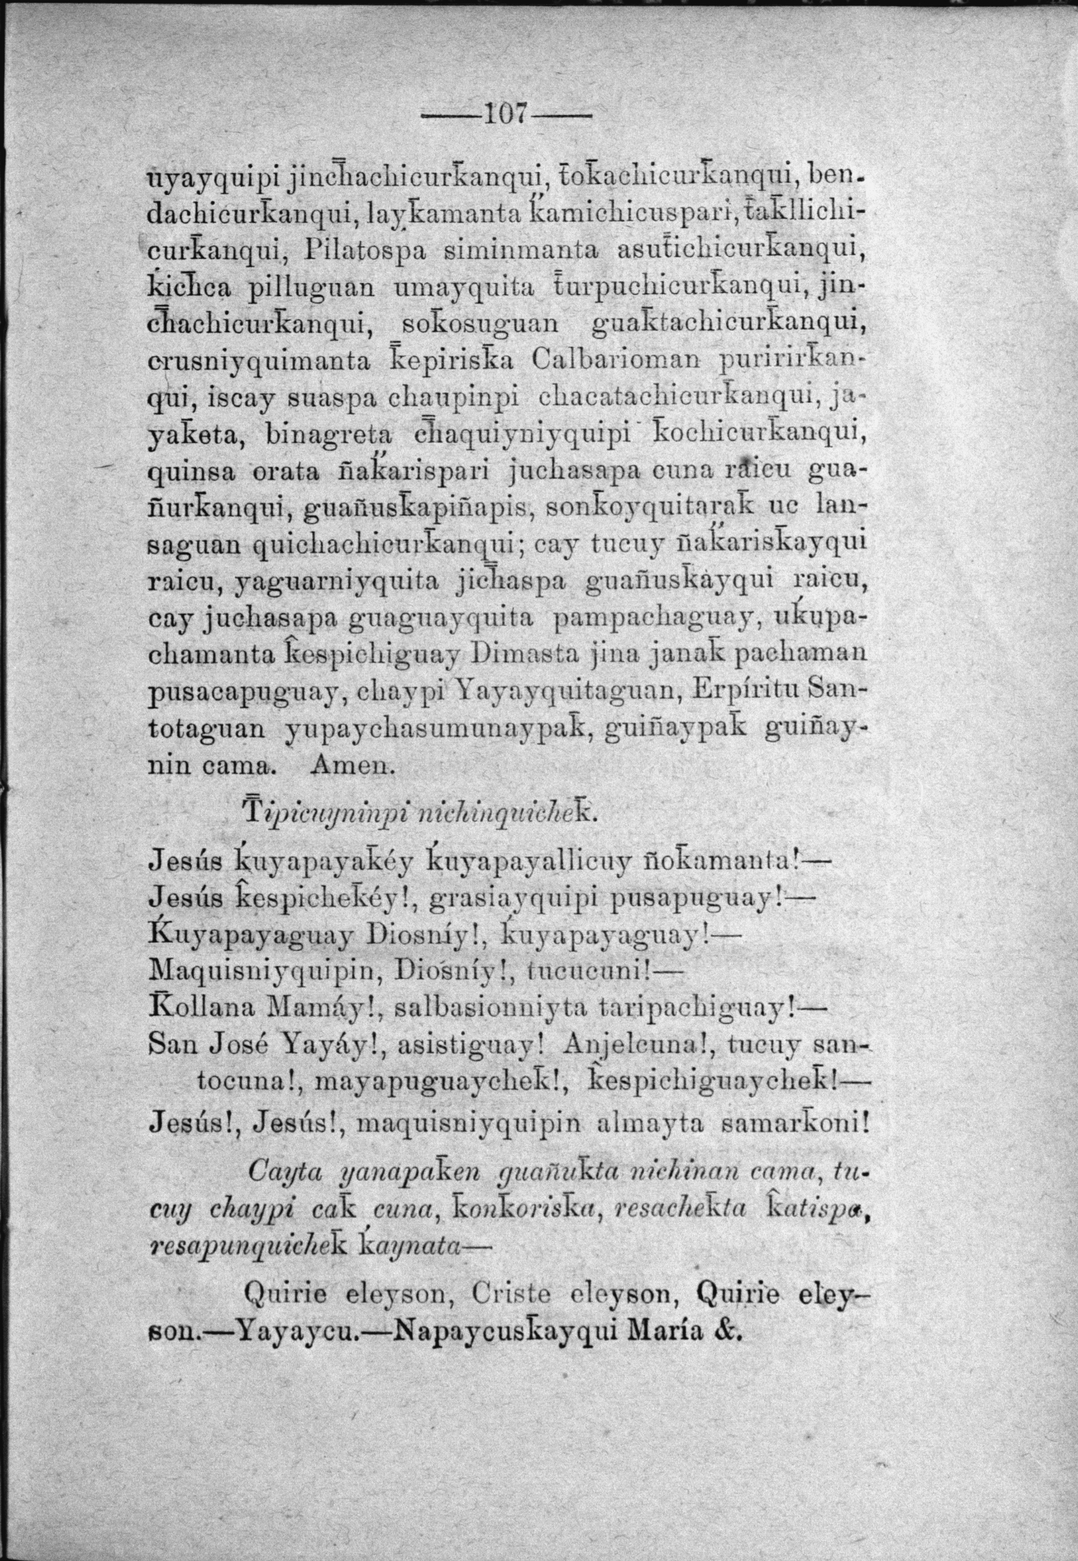 ——107——
uyayquipi jinc̿hachicurk̄anqui, t̄ok̄achicurk̄anqui, ben-
dachicurk̄anqui, layk̄amanta k̋amichicuspari, t̿ak̄llichi-
curk̄anqui, Pilatospa siminmanta asut̿ichicurk̄anqui,
ḱichca pilluguan umayquita t̿urpuchicurk̄anqui, jin-
c̿hachicurk̄anqui, sok̄osuguan guak̄tachicurk̄anqui,
crusniyquimanta k̿epirisk̄a Calbarioman puririrk̄an-
qui, iscay suaspa chaupinpi chacatachicurk̄anqui, ja-
yak̄eta, binagreta c̿haquiyniyquipi k̄ochicurk̄anqui,
quinsa orata ñak̋arispari juchasapa cuna raicu gua-
ñurk̄anqui, guañusk̄apiñapis, sonk̄oyquitarak̄ uc lan-
saguan quichachicurk̄anqui; cay tucuy ñak̋arisk̄ayqui
raicu, yaguarniyquita jic̿haspa guañusk̄ayqui raicu,
cay juchasapa guaguayquita pampachaguay, uḱupa-
chamanta k̂espichiguay Dimasta jina janak̄ pachaman
pusacapuguay, chaypi Yayayquitaguan, Erpíritu San-
totaguan yupaychasumunaypak̄, guiñaypak̄ guiñay-
nin cama. Amen.
T̿ipicuyninpi nichinquichek̄.
Jesús ḱuyapayak̄éy ḱuyapayallicuy ñok̄amanta!—
Jesús k̂espichek̄éy!, grasiayquipi pusapuguay!—
Ḱuyapayaguay Diosníy!, ḱuyapayaguay!—
Maquisniyquipin, Diosníy!, tucucuni!—
K̄ollana Mamáy!, salbasionniyta taripachiguay!—
San José Yayáy!, asistiguay! Anjelcuna!, tucuy san-
tocuna!, mayapuguaychek̄!, k̂espichiguaychek̄!—
Jesús!, Jesús!, maquisniyquipin almayta samark̄oni!
Cayta yanapak̄en guañuk̄ta nichinan cama, tu-
cuy chaypi cak̄ cuna, k̄onk̄orisk̄a, resachek̄ta k̂atispa,
resapunquichek̄ ḱaynata—
Quirie eleyson, Criste eleyson, Quirie eley-
son.—Yayaycu.—Napaycusk̄ayqui María &.